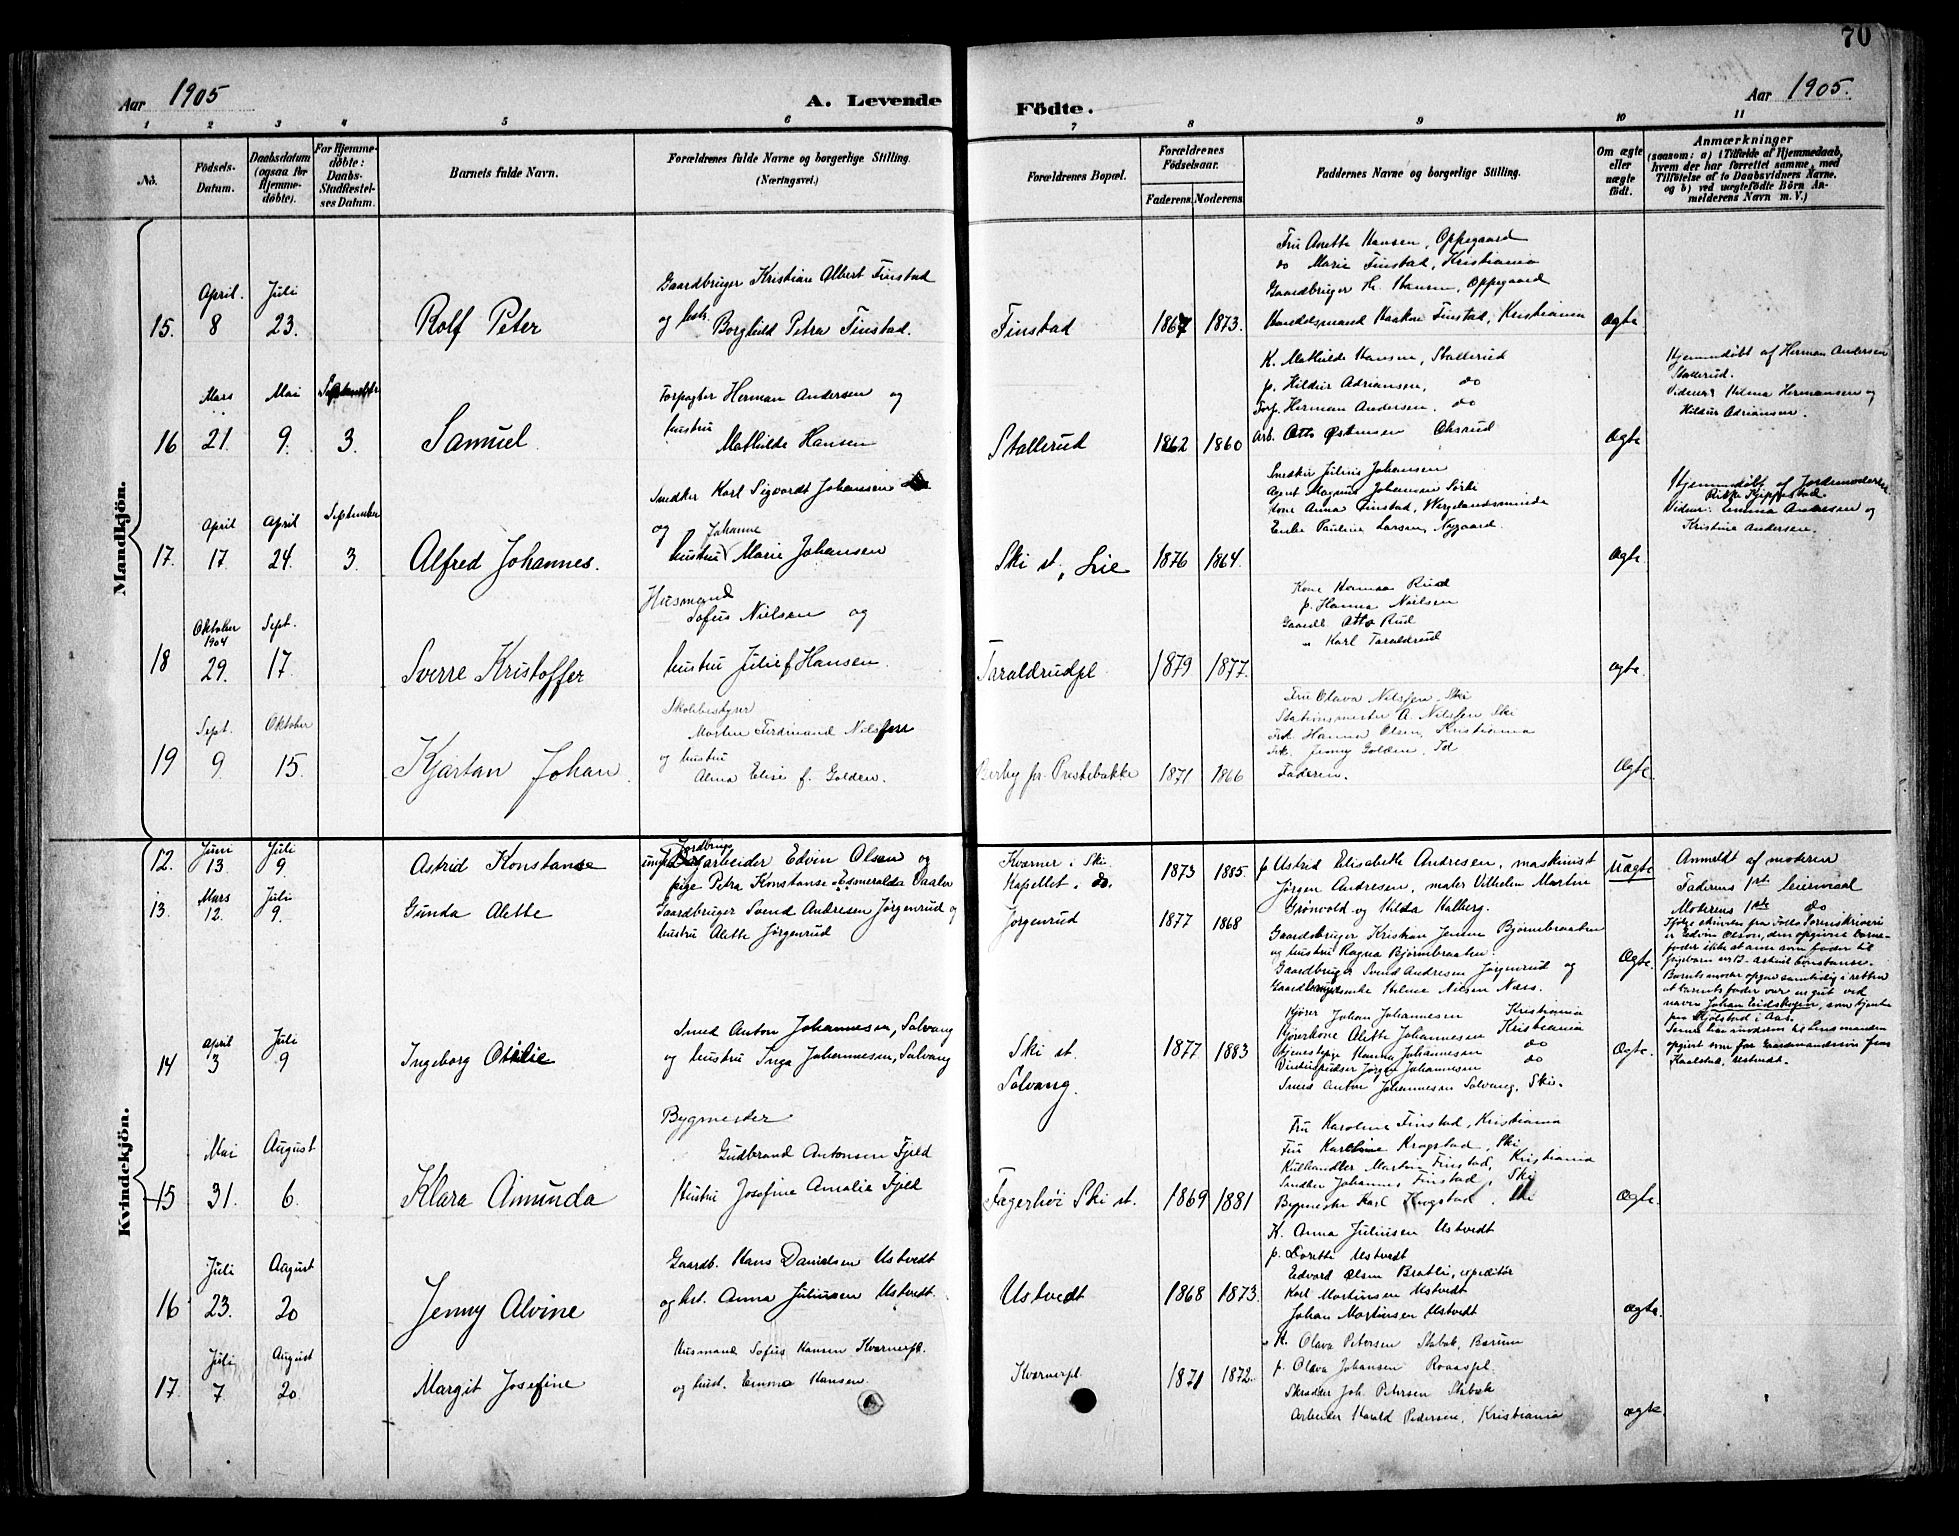 70
Aar 1905
A. Levende
Födte.
Aar 1905.
1 2 3 4 5 6 7 8 9 10 11
No.
Födsels-Datum.
Daabsdatum (ogsaa for Hjemme-döbte).
For Hjemme-döbte: Daabs-Stadfæstel-ses Datum.
Barnets fulde Navn.
Forældrenes fulde Navne og borgerlige Stilling.
(Næringsvei.)
Forældrenes Bopæl.
Forældrenes Födselsaar.
Faderens. Moderens.
Faddernes Navne og borgerlige Stilling.
Om ægte eller uægte födt.
Anmærkninger
(saasom: a) i Tilfælde af Hjemmedaab,
hvem der har forrettet samme, med
Tilföielse af to Daabsvidners Navne.
og b) ved uægtefödte Börn An-
melderens Navn m. V.)
Mandkjön.
15.
April. 8
Juli 23.
Rolf Peter
Gaardbruger Kristian Albert Finstad
og hstr. Borghild Petra Finstad.
Finstad
1867 1873.
Fru Anette Hansen, Oppegaard
do Marie Finstad, Kristiania
Gaardbruger H. Hansen, Oppegaard
Handelsmand Haakon Finstad, Kristiania
Ægte
16
Mars 21.
Mai 9.
September 3.
Samuel
Forpagter Herman Andersen og
hustru
Mathilde Hansen
Stallerud
1862 1860
K. Mathilde Hansen, Stallerud
p. Hildur Adriansen, do
Forp. Herman Andersen, do
Arb. Otto Østensen Oksrud
Ægte
Hjemmdøbt af Herman Andersen
Stallerud.
Vidner: Hilma Hermansen og
Hildur Adriansen.
17.
April 17.
April 24.
September 3.
Alfred Johannes.
Snedker Karl Sigvardt Johansen
og Johanne
hustru Marie Johansen
Ski st., Lie
1876 1864.
Snedker Julius Johansen
Agent Magnus Johansen Sørli
Kone Anna Finstad, Wergelandsminde
Enke Pauline Larsen, Nygaard.
Ægte.
Hjemmdøbt af Jordemoderen
Rikke Kippestad
Vidner: Emma Andersen og
Kristina Andersen.
18
Oktober 1904 29.
Sept. 17.
Sverre Kristoffer
Husmand
Sofus Nielsen og
hustru Julie f Hansen.
Taraldrudpl.
1879 1877.
Kone Hermaa Rud
p. Hanna Nielsen
Gaardb. Otto Rud
" Karl Taraldrud
Ægte.
19
Sept. 9
Oktober 15.
Kjartan Johan.
Skolebestyrer
Morten Ferdinand Nilssen
og hustru
Alma Elise f. Golden.
Berby pr. Prestebakke
1871 1866
Fru Olava Nilssen, Ski
Stationsmester A. Nilssen Ski
Frk. Hanna Olsen, Kristiania
Frk. Jenny Golden, Id
Faderen.
Ægte.
Kvindekjön.
12.
Juni 13.
Juli 9.
Astrid Konstanse
Jordbruge
arbeider Edvin Olsen og
pige Petra Konstanse Esmeralda Daaler
Kvarner i Ski
Kapellet i do.
1873 1885.
p Astrid Elisabeth Andresen, maskinist
Jørgen Andresen, maler Vilhelm Martin
Grønvold og Hilda Halberg.
Uægte
Anmeldt af moderen
Faderens 1ste leiermaal
Moderens 1ste do
13.
Mars 12.
Juli 9.
Gunda Alette
Gaardbruger Svend Andresen Jørgenrud og
hustru Alette Jørgenrud
Jørgenrud
1877 1868
Gaardbruger Kristian Jensen Bjørnebraaten
og hustru Ragna Bjørnebraaten.
Gaardbruger Svend Andresen Jørgenrud og
Gaardbrugerenke Helene Nielsen Næss.
Ægte.
Ifølge skrivelse fra Follo Sorenskriveri
er Edvin Olsen, den opgivne barne-
fader ikke at anse som fader til
Barnets moder opgav samtidig i retten
at barnets fader var en gut ved
navn Johan Eidskogen, som tjente
paa i Aas.
Samme har moderen til Lensmanden
14
April 3
Juli 9
Ingeborg Ottilie
Smed Anton Johannesen, Solvang
og hustru Inga Johannesen, Solvang
Ski st.
Solvang.
1877 1883
Kjører Johan Johannesen Kristiania
Kjørerkone Alette Johannesen Kristiania
Tjenestepige Hanna Johannesen do
Vinduspudser Jørgen Johannesen do
Smed Anton Johannesen Solvang, Ski.
Ægte.
15
Mai 31.
August 6.
Klara Amunda
Bygmester
Gudbrand Antonsen Fjeld
Hustru Josefine Amalie Fjeld
Fagerhøi Ski st.
1869 1881
Fru Karoline Finstad, Kristiania
Fru Karoline Krogstad, Ski
Kulhandler Martin Finstad, Kristiania
Handler Johannes Finstad, Ski
Bygmester Karl Krogstad, Ski
Ægte.
16
Juli 23.
August 20
Jenny Alvine
Gaardb. Hans Danielsen Ustvedt
og hst. Anna Juliusen Ustvedt
Ustvedt
1868 1873.
K. Anna Juliusen Ustvedt
p. Dorette Ustvedt
Edvard Olsen Bratli, expeditør
Karl Martinsen Ustvedt
Johan Martinsen Ustvedt
Ægte.
17
Juli 7
August 20.
Margit Josefine
Husmand Sofus Hansen Kvarnerpl.
og hust. Emma Hansen.
Kvarnerpl.
1871 1872.
K. Olava Petersen Stabæk, Bærum
p. Olava Johansen Roaaspl.
Skrædder Joh. Petersen Stabæk
Arbeider Harald Pedersen, Kristiania
Ægte.